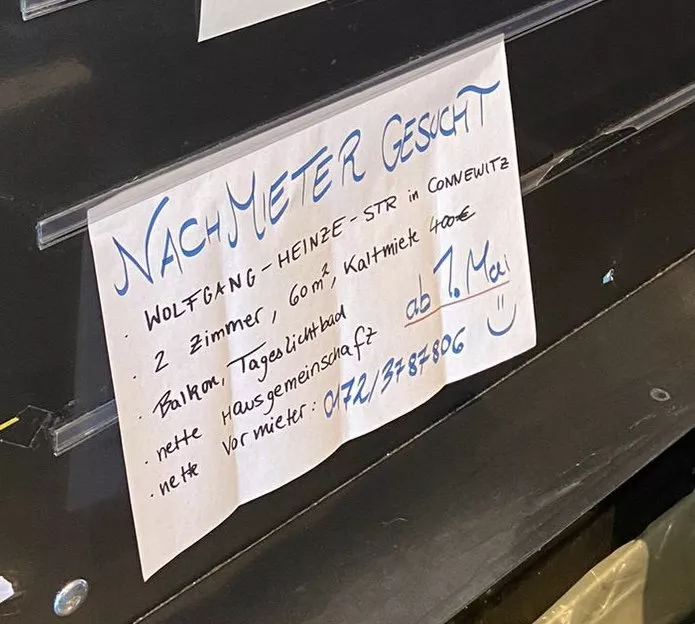 NACHMIETER GESUCHT
· WOLFGANG-HEINZE-STR in CONNEWITZ
· 2 Zimmer, 60m², Kaltmiete 400€
· Balkon, Tageslichtbad
ab 1. Mai
· nette Hausgemeinschaft
· nette Vormieter: 0172/3787806